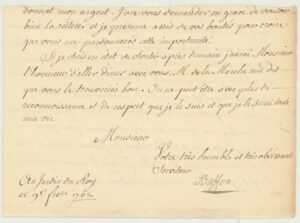 donnat mon argent. J'ose vous demander en grace de vouloir
bien la réiterer et je presume assés de vos bontés pour croire
que vous me pardonnerés cette importunité.
Si je suis en etat de sortir après demain j'aurai Monsieur
l'honneur d'aller diner avec vous. M. de la Marche m'a dit
que vous le trouveriés bon. On ne peut être avec plus de
reconnoissance et de respect que je le suis et que je le serai toute
ma vie
Monsieur
Votre très humble et très obeissant
Serviteur
Buffon
Au Jardin du Roy
ce 9e fevr 1762